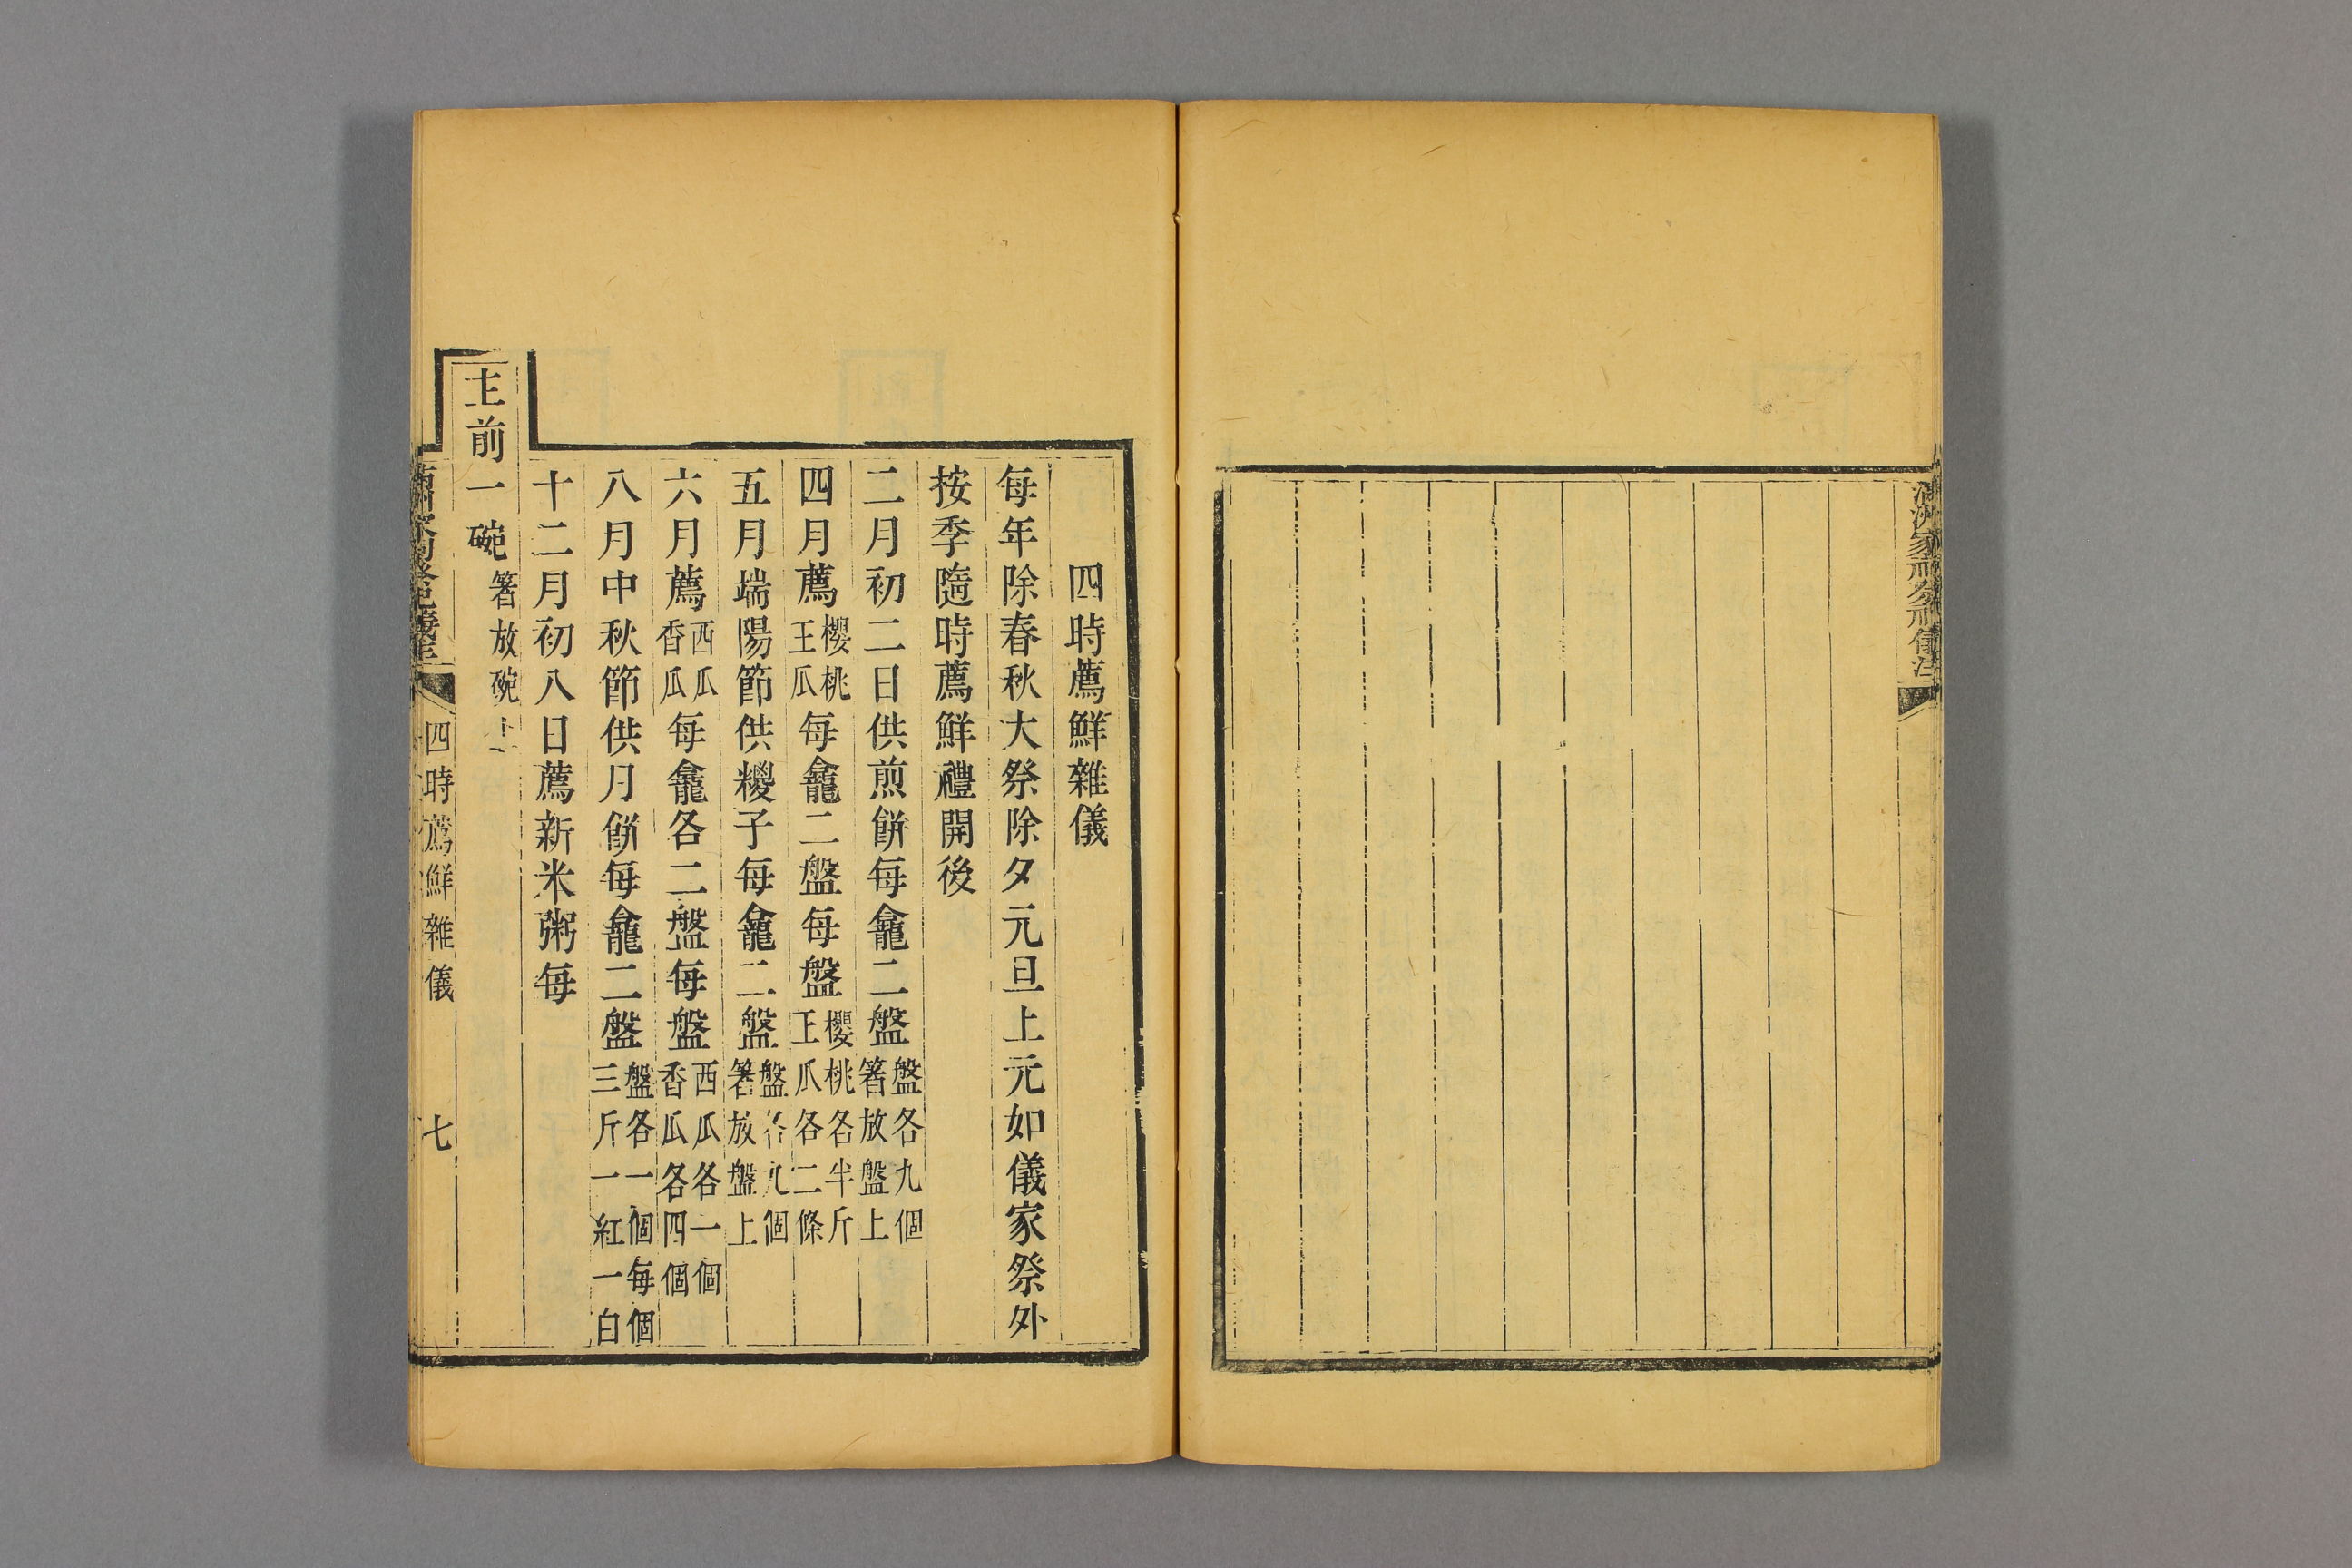 滿洲家祠祭祀儀注
四時薦鮮雜儀
每年除春秋大祭除夕元旦上元如儀家祭外
按季隨時薦鮮禮開後
二月初二日供煎餅每龕二盤盤各九個箸放盤上
四月薦櫻桃王瓜每龕二盤每盤櫻桃各半斤王瓜各二條
五月端陽節供糉子每龕二盤盤各九個箸放盤上
六月薦西瓜香瓜每龕各二盤每盤西瓜各一個香瓜各四個
八月中秋節供月餅每龕二盤盤各一個每個三斤一紅一白
十二月初八日薦新米粥每
主前一碗箸放碗上
滿洲家祠祭祀儀注 四時薦鮮雜儀 七